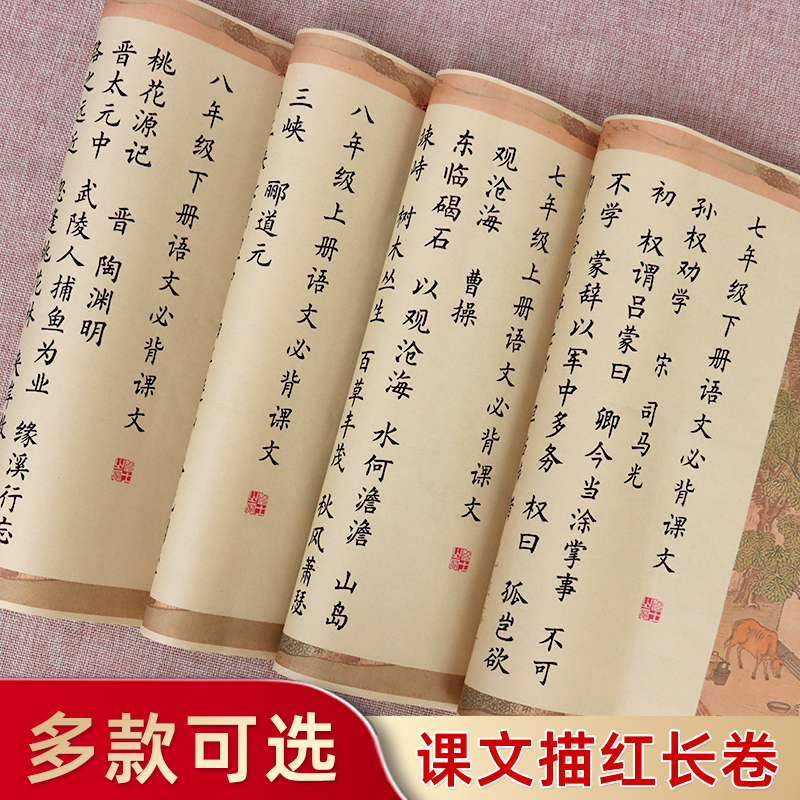 七年级下册语文必背课文
孙权劝学 宋 司马光
初 权谓吕蒙曰 卿今当涂掌事 不可
不学 蒙辞以军中多务 权曰 孤岂欲
七年级上册语文必背课文
观沧海 曹操
东临碣石 以观沧海 水何澹澹 山岛
竦峙 树木丛生 百草丰茂 秋风萧瑟
八年级上册语文必背课文
三峡 郦道元
八年级下册语文必背课文
桃花源记 晋 陶渊明
晋太元中 武陵人捕鱼为业 缘溪行 忘
路之远近 忽逢桃花林
多款可选
课文描红长卷